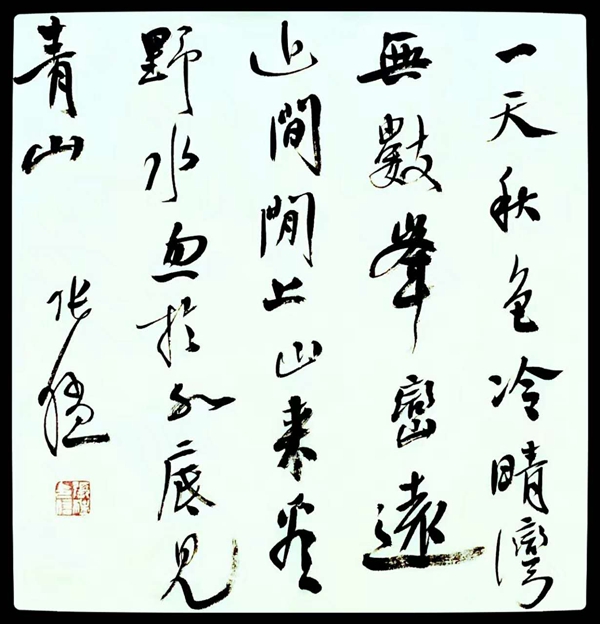 一天秋色冷晴灣
無數峯巒遠
近間閒上山來看
野水忽於水底見
青山